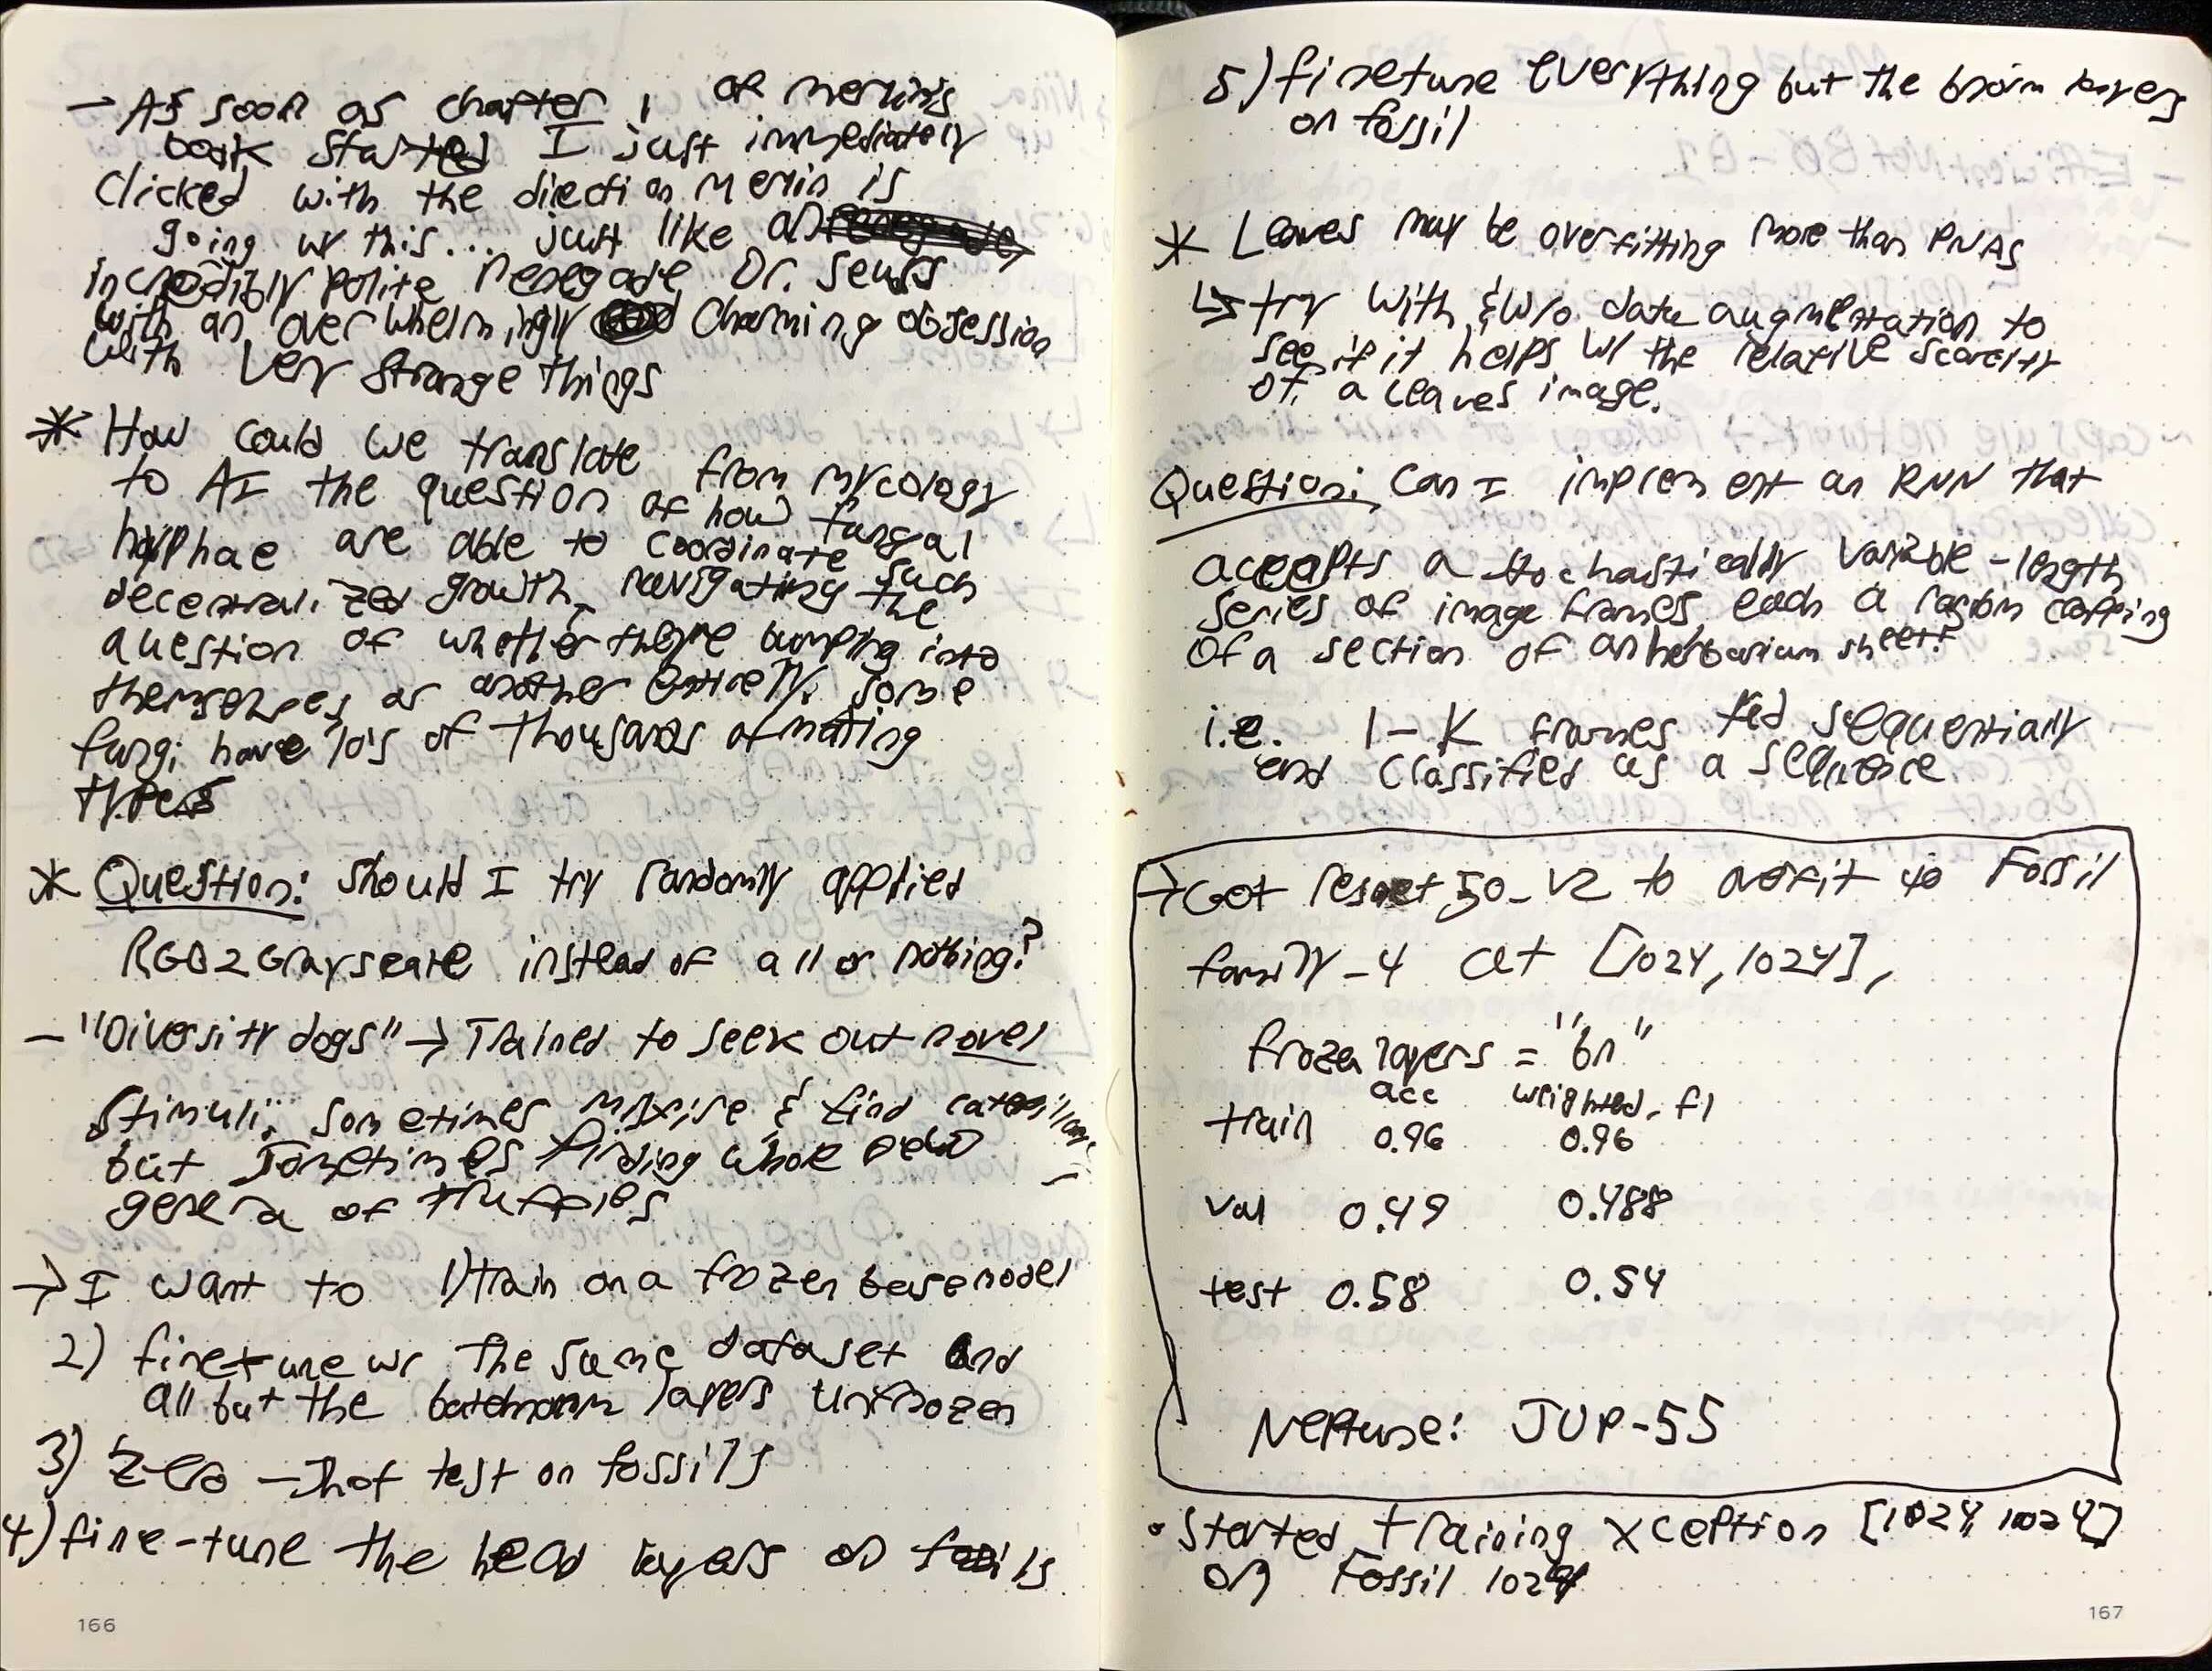 - As soon as chapter 1 of Merlin's
book started I just immediately
clicked with the direction Merlin is
going w/ this... just like an
incredibly polite renegade Dr. Seuss
with an overwhelmingly charming obsession
with very strange things
* How could we translate from mycology
to AI the question of how fungal
hyphae are able to coordinate such
decentralized growth, navigating the
question of whether they're bumping into
themselves or another entirely. Some
fungi have 10's of thousands of mating
types
* Question: Should I try randomly applied
RGB2Grayscale instead of all or nothing?
- "Diversity dogs" → Trained to seek out novel
stimuli; sometimes misfire & find caterpillars,
but sometimes finding whole new
genera of truffles
→ I want to 1) train on a frozen base model
2) finetune w/ the same dataset and
all but the batchnorm layers unfrozen
3) Zero-shot test on fossils
4) fine-tune the head layers on fossils
166
5) finetune everything but the bnorm layers
on fossil
* Leaves may be overfitting more than PNAS
↳ try with & w/o data augmentation to
see if it helps w/ the relative scarcity
of a leaves image.
Question: Can I implement an RNN that
accepts a stochastically variable-length
series of image frames, each a random cropping
of a section of an herbarium sheet?
i.e. 1-K frames fed sequentially
and classified as a sequence
→ Got resnet_50_v2 to overfit to Fossil
family_4 at [1024, 1024],
frozen layers = "bn"
acc weighted_f1
train 0.96 0.96
val 0.49 0.488
test 0.58 0.54
Neptune: JUP-55
• Started training xception [1024, 1024]
on Fossil 1024
167